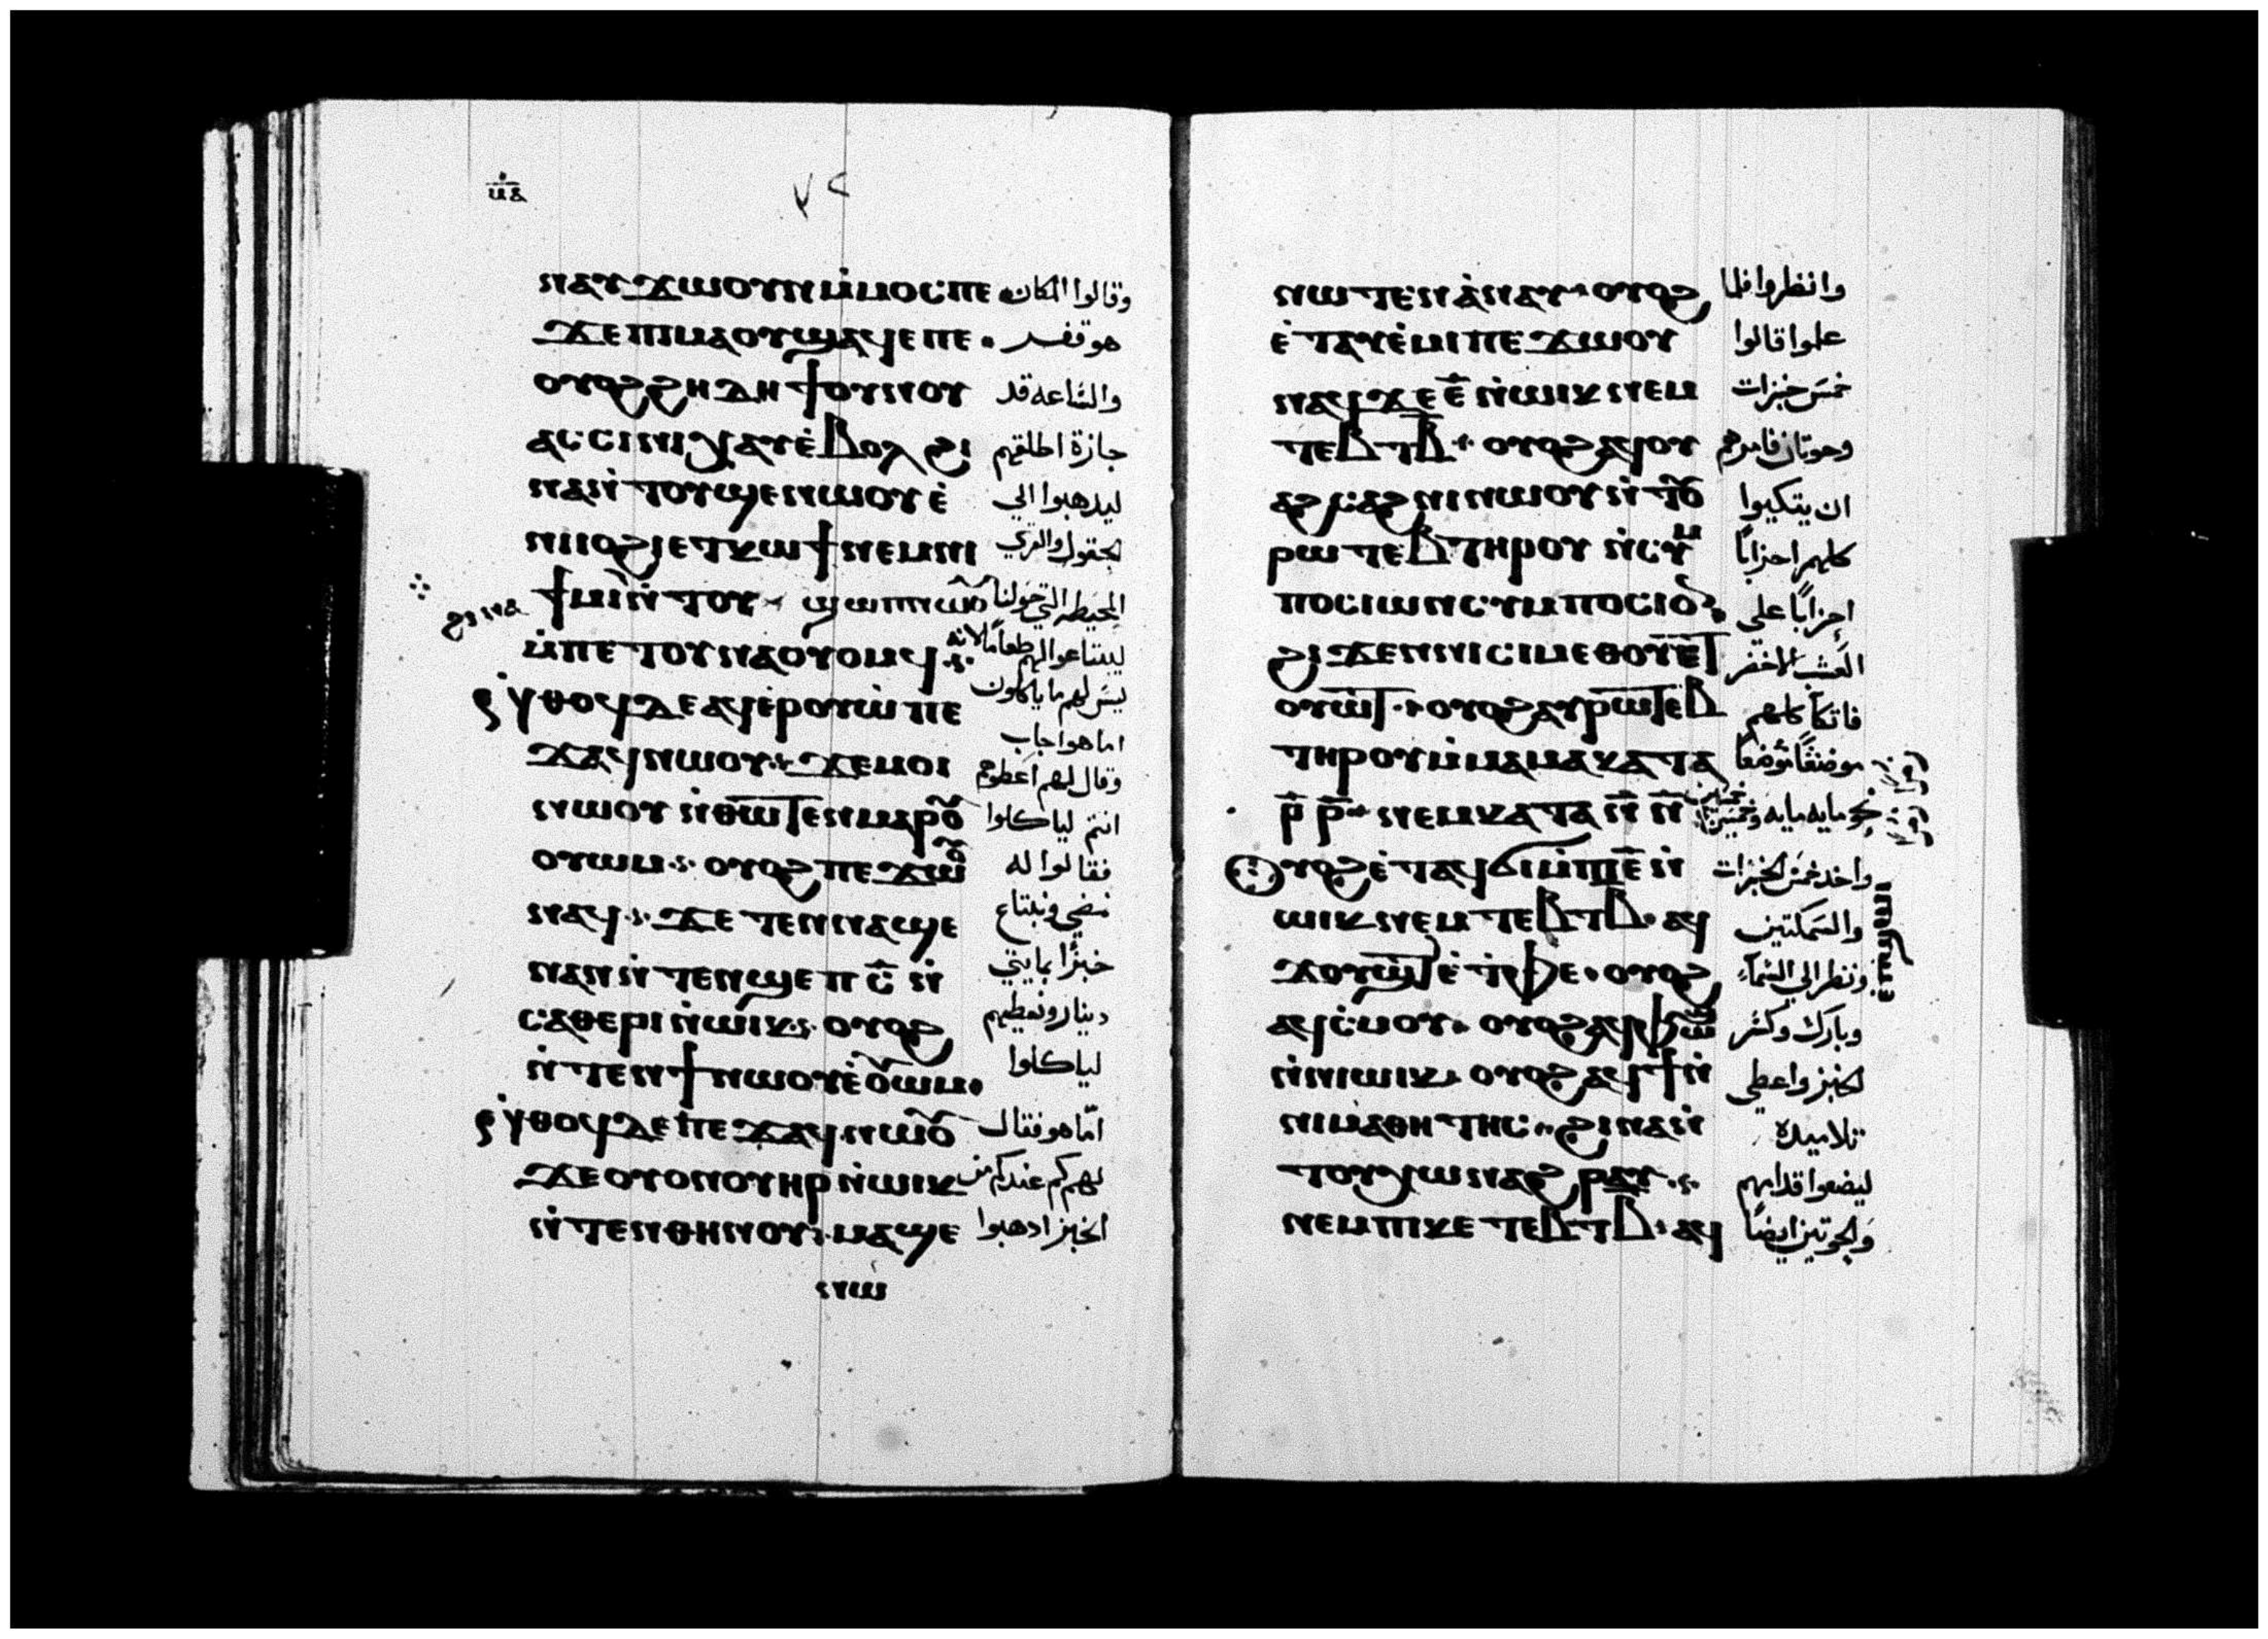 ⲙ̅ⲁ̅
٧٢
ⲛⲁⲩϫⲱⲟⲩⲛ ⲙ̇ⲙⲟⲥⲡⲉ وقالوا المكان
ϫⲉⲡⲓⲙⲁⲟⲩϣⲁϥⲉⲡⲉ . هو قفر
ⲟⲩⲟϩϩⲏⲇⲏ ϯⲟⲩⲛⲟⲩ والساعه قد
ⲁⲥⲥⲓⲛⲓ ⲭⲁⲩⲉ̇ⲃⲟⲗ ϩⲓ جازة اطلقهم
ⲛⲁⲛ̇ⲧⲟⲩϣⲉⲛⲱⲟⲩ ⲉ̇ ليدهبوا الي
ⲛⲓⲓⲟϩⲓⲉⲧⲕⲱϯ ⲛⲉⲙⲛⲓ الحقول والقري
ϯⲙⲓⲛ̇ⲧⲟⲩ ϣⲱⲡⲛⲱⲟⲩ المحيطه التي حولنا
ⲙ̇ⲡⲉⲧⲟⲩⲛⲁⲟⲩⲟⲙϥ ليبتاعوا لهم طعامًا لانه
ⲛ̇ⲑⲟϥⲇⲉ ⲁϥⲉ̇ⲣⲟⲩⲱ̇ ⲡⲉ ليس لهم ما ياكلون
اما هو اجاب
ϫⲁϥⲛⲱⲟⲩ ϫⲉⲙⲟⲓ وقال لهم اعطوهم
ⲛⲱⲟⲩ ⲛ̇ⲑⲱⲧⲉⲛⲙⲁⲣⲟⲩ انتم لياكلوا
ⲟⲩⲱⲙ ⲟⲩⲟϩ ⲡⲉϫⲱⲟⲩ فقالوا له
ⲛⲁϥ ϫⲉ ⲧⲉⲛⲛⲁϣⲉ نمضي ونبتاع
ⲛⲁⲛ ⲛ̇ⲧⲉⲛϣⲉⲡ ⲥ̅ ⲛ̇ خبزًا بمايتي
ⲥⲁⲑⲉⲣⲓ ⲛ̇ⲱⲓⲕ ⲟⲩⲟϩ دينار ونعطيهم
ⲛ̇ⲧⲉⲛϯⲛⲱⲟⲩⲉ̇ⲟⲩⲱⲙ . لياكلوا
ⲛ̇ⲑⲟϥⲇⲉ ⲡⲉϫⲁϥ ⲛⲱⲟⲩ امّا هو فقال
ϫⲉ ⲟⲩⲟⲛ ⲟⲩⲏⲣ ⲛ̇ⲱⲓⲕ لهم كم عندكم من
ⲛ̇ⲧⲉⲛⲑⲏⲛⲟⲩ ⲙⲁϣⲉ الخبز ادهبوا
ⲛⲱ
ⲛⲱⲧⲉⲛ ⲁ̇ⲛⲁⲩ ⲟⲩⲟϩ وانظروا فلما
ⲉ̇ⲧⲁⲩⲉ̇ⲙⲓ ⲡⲉϫⲱⲟⲩ علموا قالوا
ⲛⲁϥϫⲉ ⲉ̅ ⲛ̇ⲱⲓⲕ ⲛⲉⲙ خمس خبزات
ⲧⲉⲃⲧ ⲃ̅ ⲟⲩⲟϩ ⲁϥⲟⲩ وحوتان فامرهم
ⲁϩⲥⲁϩⲛⲓ ⲛⲱⲟⲩ ⲛ̇ⲧⲟⲩ ان يتكيوا
ⲣⲱⲧⲉⲃ ⲧⲏⲣⲟⲩ ⲛ̇ⲥⲩⲙ كلهم احزابًا
ⲡⲟⲥⲓⲱⲛ ⲥⲩⲙⲡⲟⲥⲓⲟⲛ احزابًا على
ϩⲓϫⲉⲛⲛⲓⲥⲓⲙ ⲉⲑⲟⲩⲉⲧ العشب الاخضر
ⲟⲩⲱⲧ ⲟⲩⲟϩ ⲁⲩⲣⲱⲧⲉⲃ فاتكا كلهم
ⲧⲏⲣⲟⲩ ⲙ̇ⲙⲁ ⲙⲁ ⲕⲁⲧⲁ موضعًا موضعًا
ⲣ̅ ⲣ̅ ⲛⲉⲙ ⲕⲁⲧⲁ ⲛ̅ ⲛ̅ نحو مايه مايه وخمسين
ⲟⲩⲟϩ ⲉ̇ⲧⲁϥϭⲓ ⲙ̇ⲡⲓⲉ̅ ⲛ̇ واخد خمس الخبزات
ⲱⲓⲕ ⲛⲉⲙ ⲧⲉⲃⲧ ⲃ̅ ⲁϥ والسمكتين
ϫⲟⲩϣⲧ ⲉ̇ⲧ̇ⲫⲉ ⲟⲩⲟϩ ونظر الي السماء
ⲉⲡϣⲱⲓ
ⲁϥⲥ̇ⲙⲟⲩ ⲟⲩⲟϩ ⲁϥⲫⲱϣ وبارك وكسر
ⲛ̇ⲛⲓⲱⲓⲕ ⲟⲩⲟϩ ⲁϥϯ ⲛ̇ الخبز واعطي
ⲛⲓⲙⲁⲑⲏⲧⲏⲥ ϩⲓⲛⲁ ⲛ̇ تلاميده
ⲧⲟⲩⲭⲱ ⲛⲁϩⲣⲁⲩ ليضعوا قدامهم
ⲛⲉⲙ ⲡⲓⲕⲉ ⲧⲉⲃⲧ ⲃ̅ ⲁϥ والحوتين ايضًا